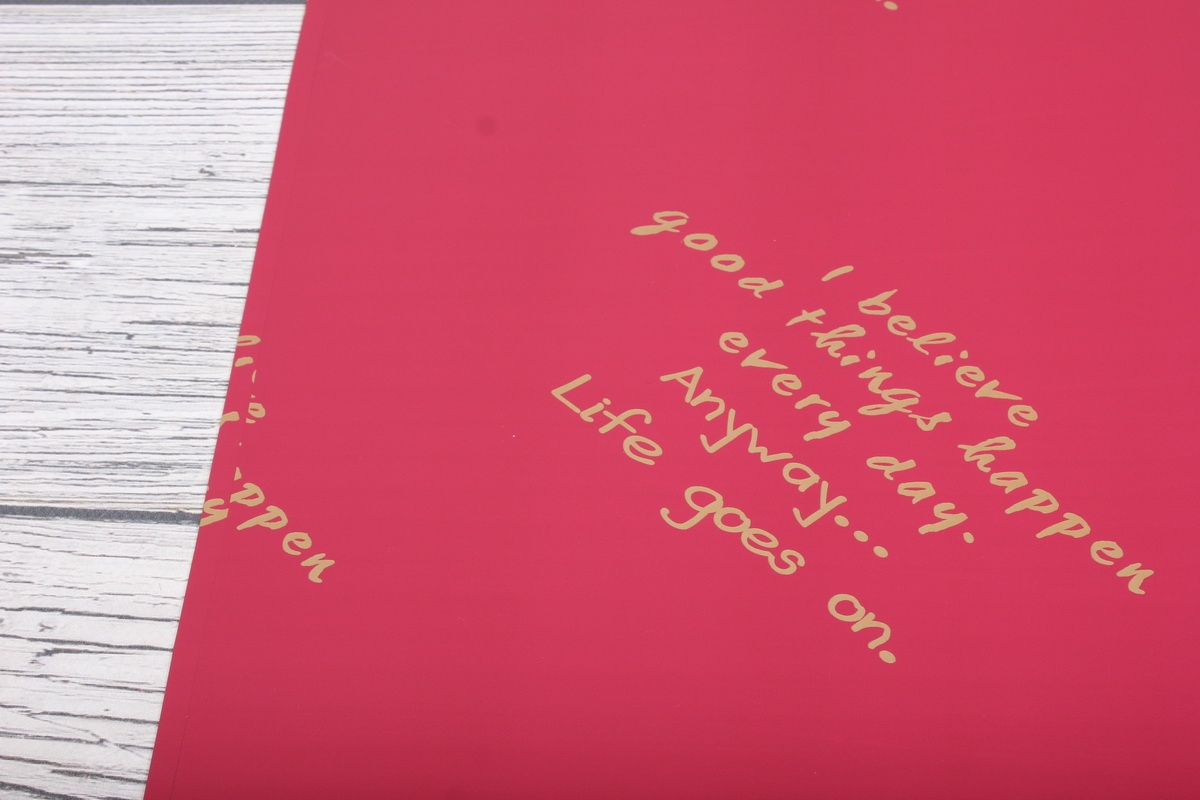 I believe
good things happen
every day.
Anyway...
Life goes on.
ppen
y